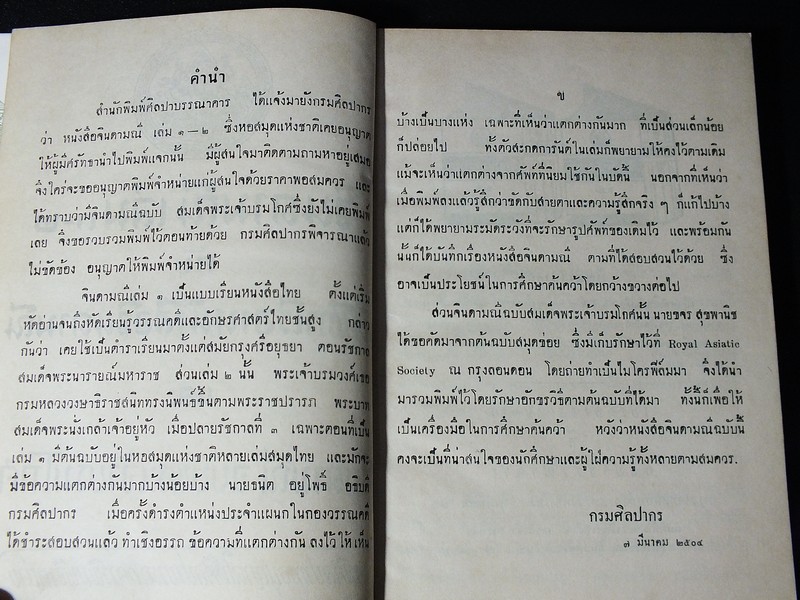 คำนำ
สำนักพิมพ์ศิลปาบรรณาคาร ได้แจ้งมายังกรมศิลปากร
ว่า หนังสือจินดามณี เล่ม ๑—๒ ซึ่งหอสมุดแห่งชาติเคยอนุญาต
ให้ผู้มีศรัทธานำไปพิมพ์แจกนั้น มีผู้สนใจมาติดตามถามหาอยู่เสมอ
จึงใคร่จะขออนุญาตพิมพ์จำหน่ายแก่ผู้สนใจด้วยราคาพอสมควร และ
ได้ทราบว่ามีจินดามณีฉบับ สมเด็จพระเจ้าบรมโกศซึ่งยังไม่เคยพิมพ์
เลย จึงขอรวบรวมพิมพ์ไว้ตอนท้ายด้วย กรมศิลปากรพิจารณาแล้ว
ไม่ขัดข้อง อนุญาตให้พิมพ์จำหน่ายได้
จินดามณีเล่ม ๑ เป็นแบบเรียนหนังสือไทย ตั้งแต่เริ่ม
หัดอ่านจนถึงหัดเรียนรู้วรรณคดีและอักษรศาสตร์ไทยชั้นสูง กล่าว
กันว่า เคยใช้เป็นตำราเรียนมาตั้งแต่สมัยกรุงศรีอยุธยา ตอนรัชกาล
สมเด็จพระนารายณ์มหาราช ส่วนเล่ม ๒ นั้น พระเจ้าบรมวงศ์เธอ
กรมหลวงวงษาธิราชสนิททรงนิพันธ์ขึ้นตามพระราชปรารภ พระบาท
สมเด็จพระนั่งเกล้าเจ้าอยู่หัว เมื่อปลายรัชกาลที่ ๓ เฉพาะตอนที่เป็น
เล่ม ๑ มีต้นฉบับอยู่ในหอสมุดแห่งชาติหลายเล่มสมุดไทย และมักจะ
มีข้อความแตกต่างกันมากบ้างน้อยบ้าง นายธนิต อยู่โพธิ์ อธิบดี
กรมศิลปากร เมื่อครั้งดำรงตำแหน่งประจำแผนกในกองวรรณคดี
ได้ชำระสอบสวนแล้ว ทำเชิงอรรถ ข้อความที่แตกต่างกัน ลงไว้ ให้เห็น
ข
บ้างเป็นบางแห่ง เฉพาะที่เห็นว่าแตกต่างกันมาก ที่เป็นส่วนเล็กน้อย
ก็ปล่อยไป ทั้งตัวสะกดการันต์ในเล่มก็พยายามให้คงไว้ตามเดิม
แม้จะเห็นว่าแตกต่างจากศัพท์ที่นิยมใช้กันในบัดนี้ นอกจากที่เห็นว่า
เมื่อพิมพ์ลงแล้วรู้สึกว่าขัดกับสายตาและความรู้สึกจริง ๆ ก็แก้ไปบ้าง
แต่ก็ได้พยายามระมัดระวังที่จะรักษารูปศัพท์ของเดิมไว้ และพร้อมกัน
นั้นก็ได้บันทึกเรื่องหนังสือจินดามณี ตามที่ได้สอบสวนไว้ด้วย ซึ่ง
อาจเป็นประโยชน์ในการศึกษาค้นคว้าโดยกว้างขวางต่อไป
ส่วนจินดามณีฉบับสมเด็จพระเจ้าบรมโกศนั้น นายขจร สุขพานิช
ได้ขอคัดมาจากต้นฉบับสมุดข่อย ซึ่งมีเก็บรักษาไว้ที่ Royal Asiatic
Society ณ กรุงลอนดอน โดยถ่ายทำเป็นไมโครฟิล์มมา จึงได้นำ
มารวมพิมพ์ไว้โดยรักษาอักขรวิธีตามต้นฉบับที่ได้มา ทั้งนี้ก็เพื่อให้
เป็นเครื่องมือในการศึกษาค้นคว้า หวังว่าหนังสือจินดามณีฉบับนี้
คงจะเป็นที่น่าสนใจของนักศึกษาและผู้ใฝ่ความรู้ทั้งหลายตามสมควร.
กรมศิลปากร
๗ มีนาคม ๒๕๐๔